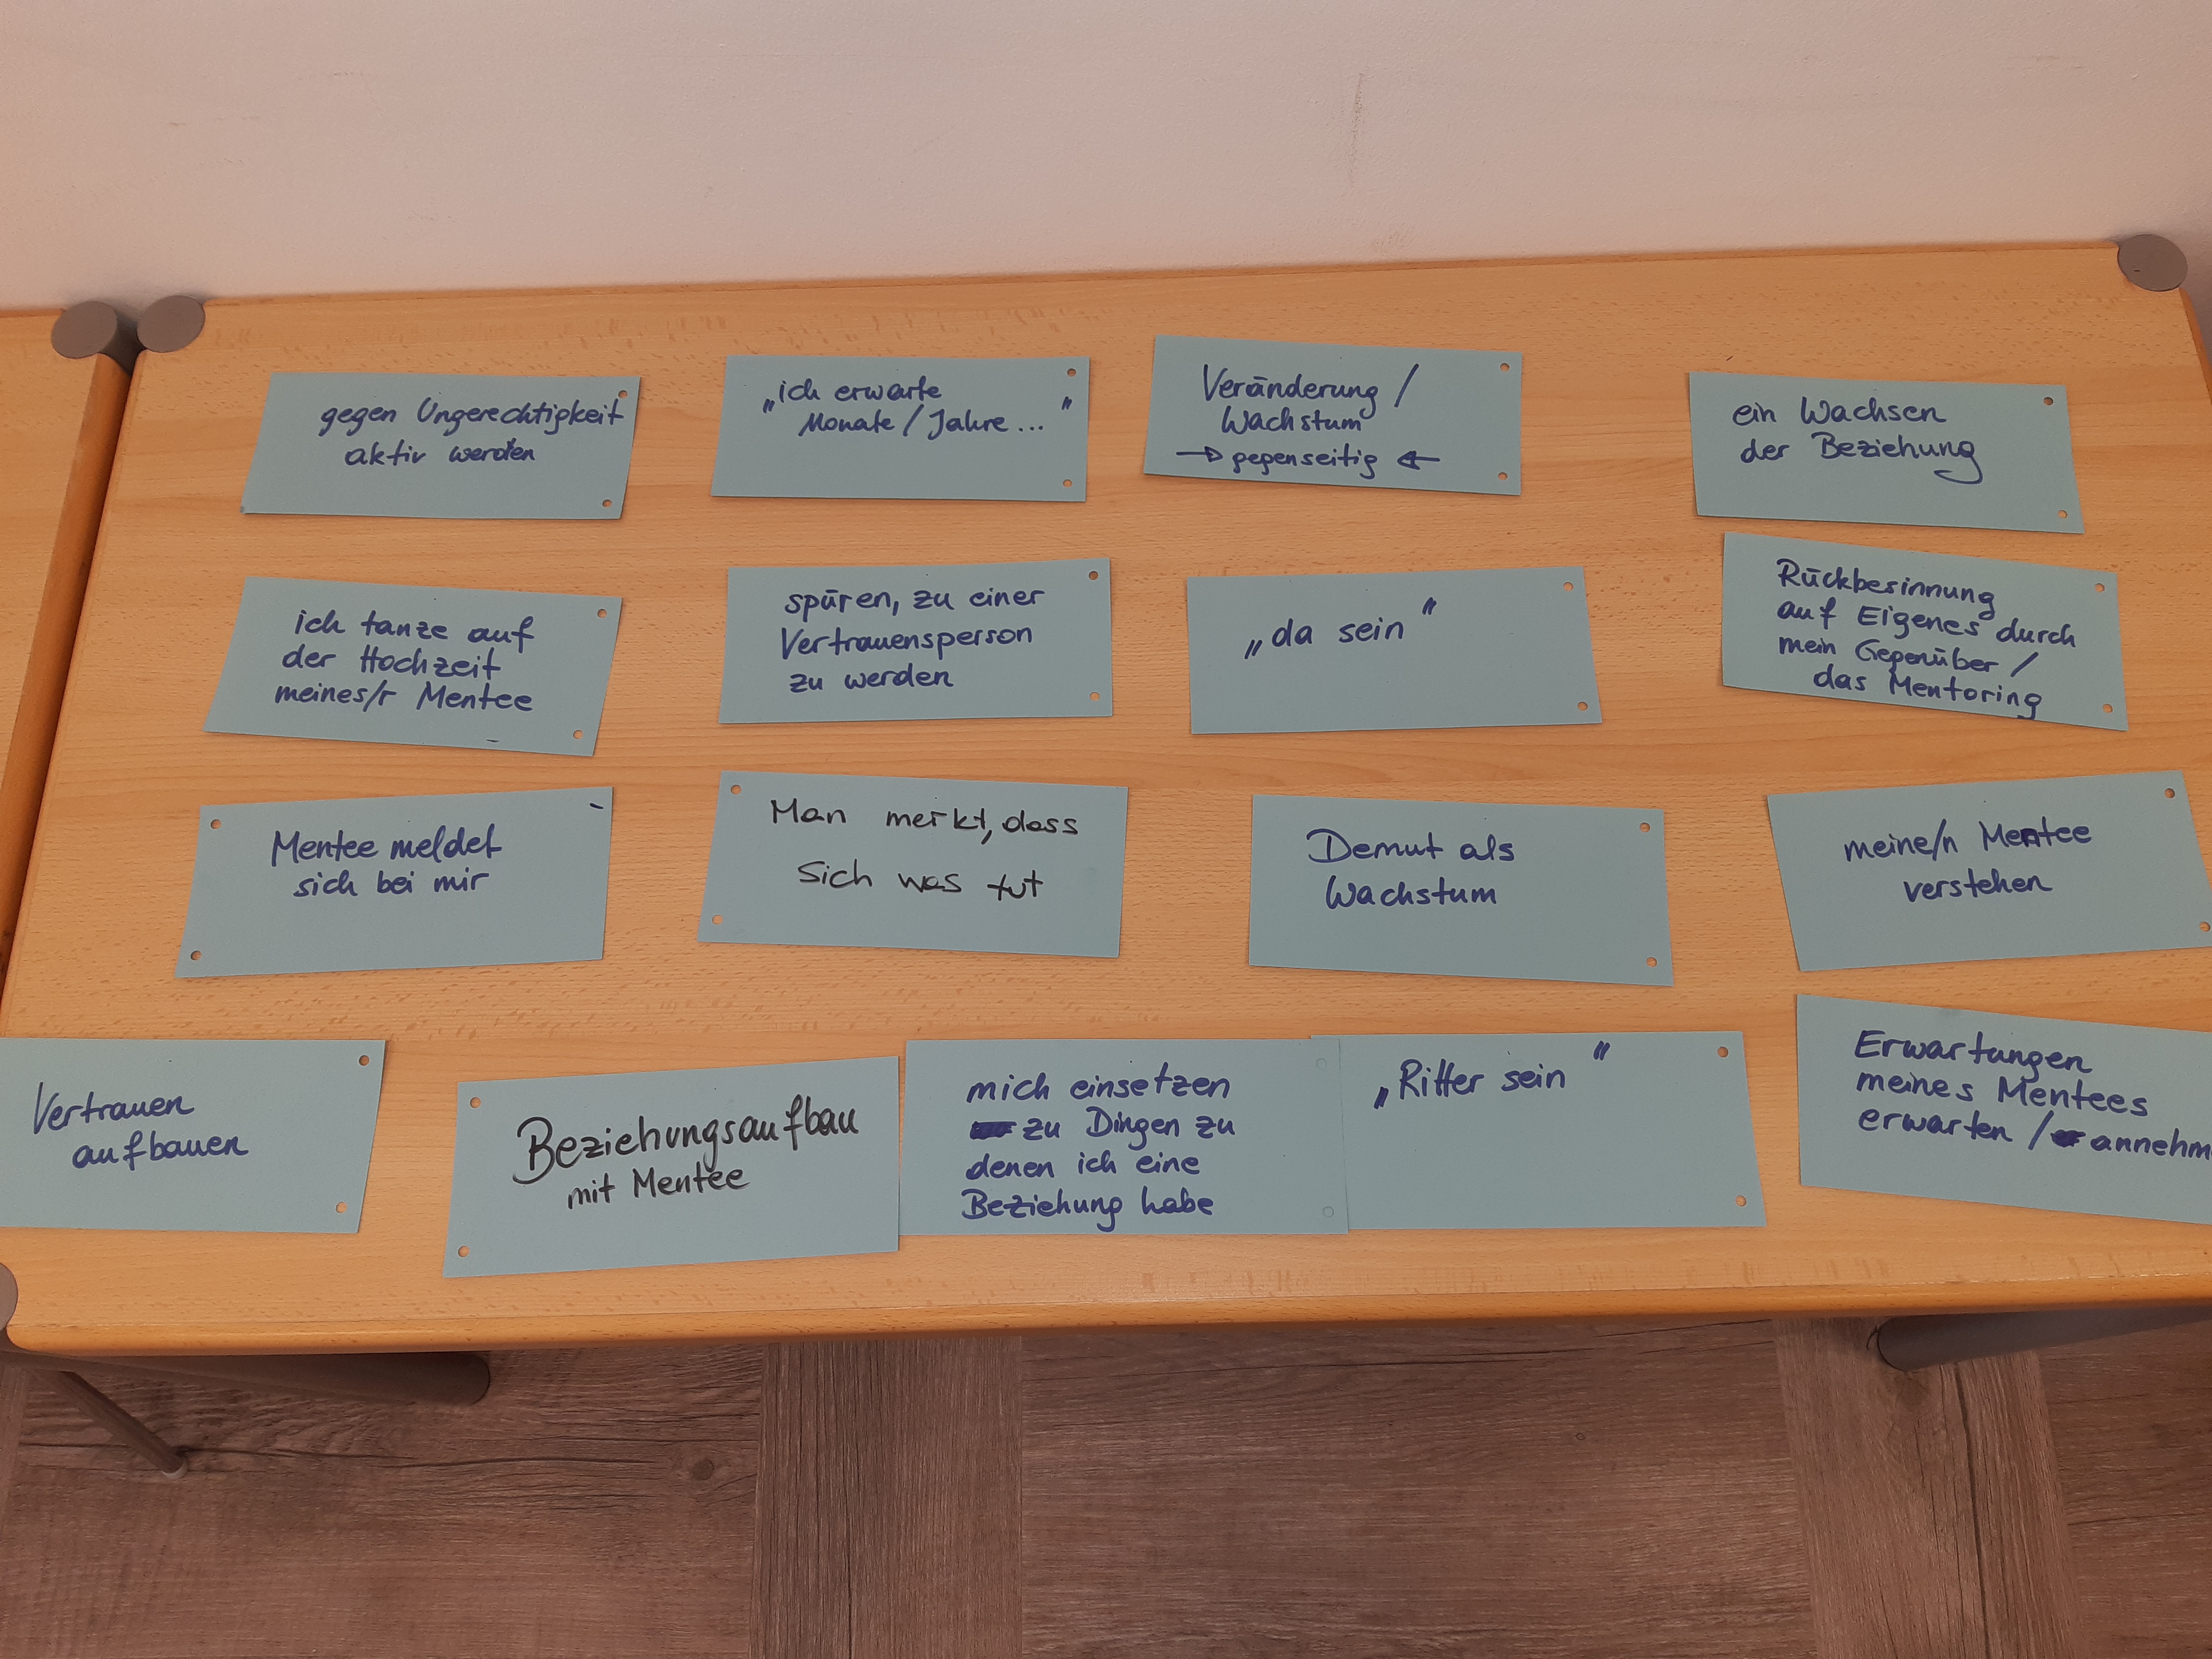 gegen Ungerechtigkeit
aktiv werden
„ich erwarte
Monate / Jahre ... "
Veränderung /
Wachstum
→ gegenseitig ←
ein Wachsen
der Beziehung
ich tanze auf
der Hochzeit
meines/r Mentee
spüren, zu einer
Vertrauensperson
zu werden
„da sein"
Rückbesinnung
auf Eigenes durch
mein Gegenüber /
das Mentoring
Mentee meldet
sich bei mir
Man merkt, dass
sich was tut
Demut als
Wachstum
meine/n Mentee
verstehen
Vertrauen
aufbauen
Beziehungsaufbau
mit Mentee
mich einsetzen
zu Dingen zu
denen ich eine
Beziehung habe
„Ritter sein"
Erwartungen
meines Mentees
erwarten / annehm